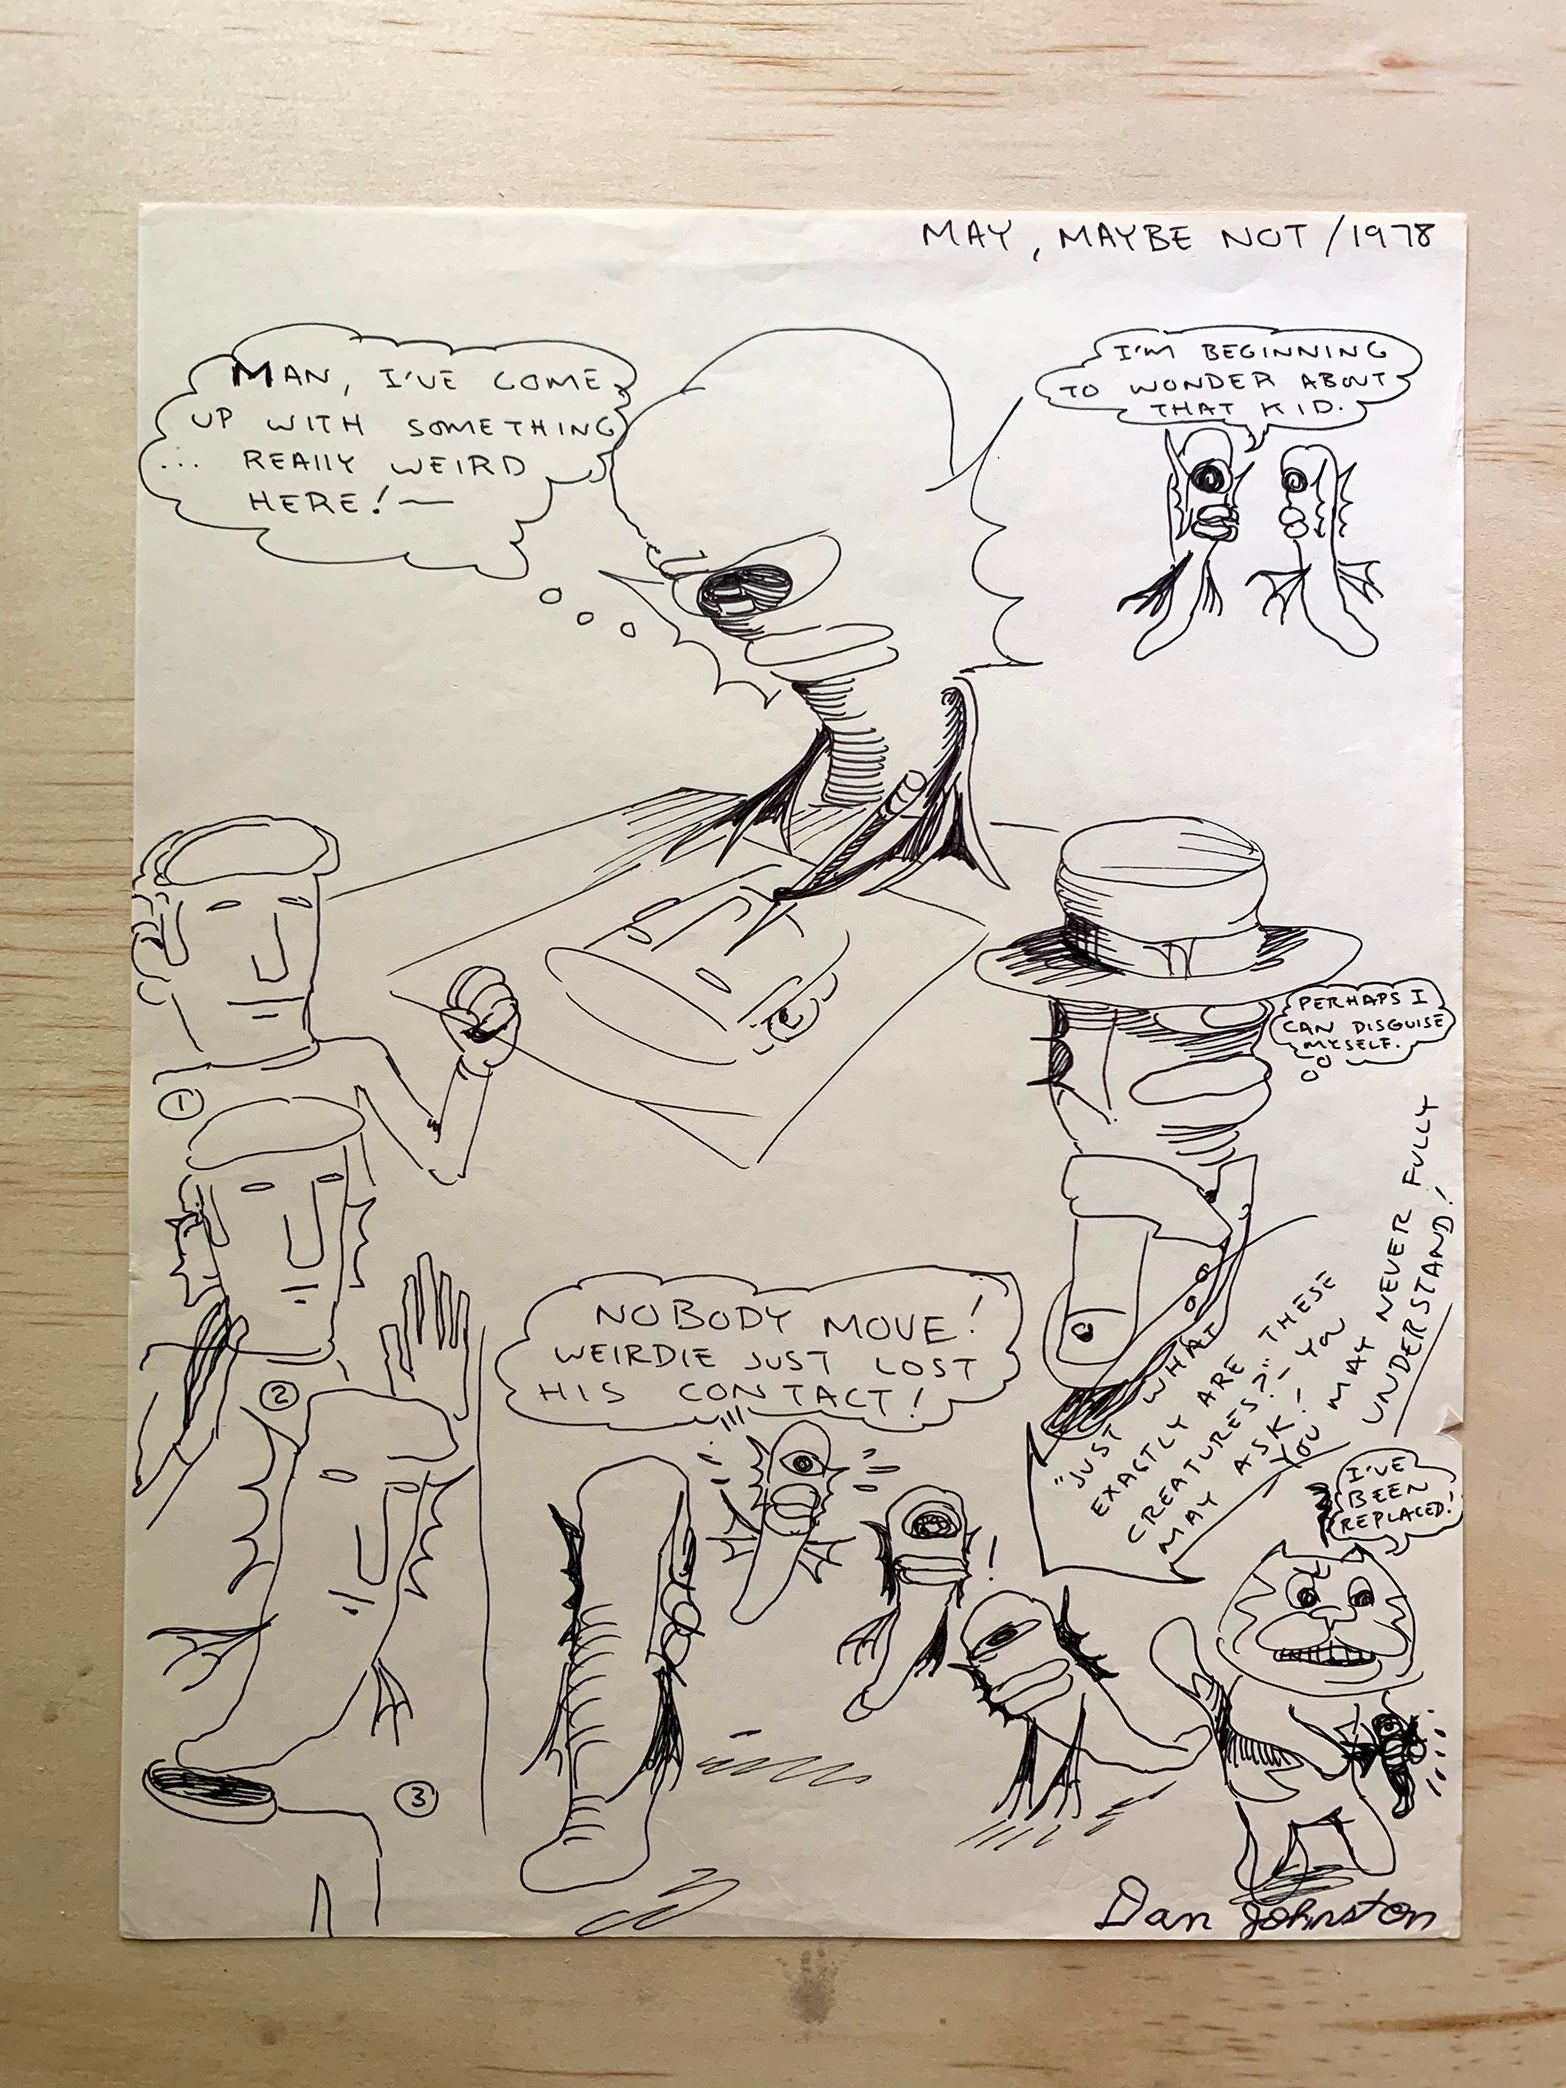 MAY, MAYBE NOT /1978
MAN, I'VE COME
UP WITH SOMETHING
... REALLY WEIRD
HERE!—
I'M BEGINNING
TO WONDER ABOUT
THAT KID.
PERHAPS I
CAN DISGUISE
MYSELF.
1
2
3
NOBODY MOVE!
WEIRDIE JUST LOST
HIS CONTACT!
!
"JUST WHAT
EXACTLY ARE THESE
CREATURES?"- YOU
MAY ASK!
YOU MAY NEVER FULLY
UNDERSTAND!
I'VE
BEEN
REPLACED!
Dan Johnston